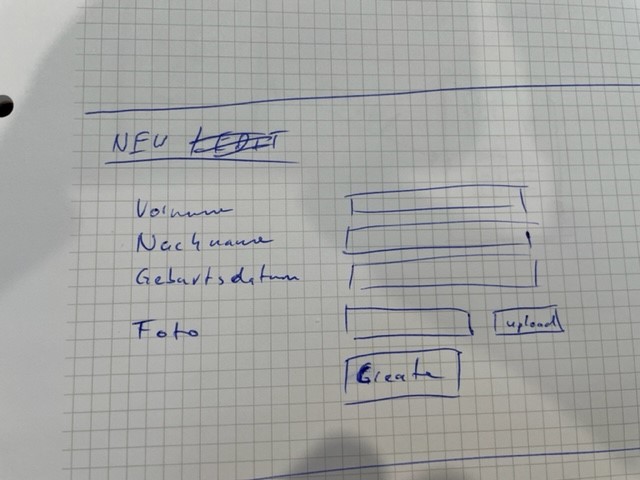 NEU
Vorname
Nachname
Geburtsdatum
Foto upload
Create